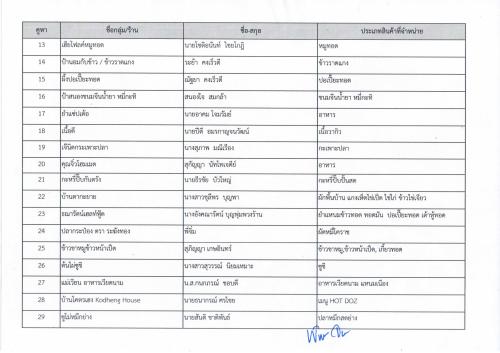 คูหา ชื่อกลุ่ม/ร้าน ชื่อ-สกุล ประเภทสินค้าที่จำหน่าย
13 เฮียโฟลค์หมูทอด นายโชติอนันท์ ไชยโกฏิ หมูทอด
14 ป้านอมกับข้าว / ข้าวราดแกง ระยำ คงเร็วดี ข้าวราดแกง
15 ผึ้งปอเปี๊ยะทอด ณัฐยา คงเร็วดี ปอเปี๊ยะทอด
16 ป้าสนองขนมจีนน้ำยา หมี่กะทิ สนองใจ สมกล้า ขนมจีนน้ำยา หมี่กะทิ
17 ยำแซ่บเด้อ นายอาคม โจมรัมย์ อาหาร
18 เนื้อดี นายปิติ อมรกาญจนวัฒน์ เนื้อวากิว
19 เจ๊นิดกระเพาะปลา นางสุภาพ มณีเรือง กะเพาะปลา
20 คุณจิ๋วโฮมเมด สุกัญญา นัทไพเจดีย์ อาหาร
21 กะหรี่ปั๊บกันตรัง นายธีรชัย บัวใหญ่ กะหรี่ปั๊บปั้นสด
22 บ้านตากะยาย นางสาวชุลีพร บุญพา ผักพื้นบ้าน แกงเห็ดไข่เป็ด ไข่ไก่ ข้าวไข่เจียว
23 ธณารัตน์เฮลท์ฟู้ด นางอังคณารัตน์ บุญพุ่มพวงร้าน ยำแหนมข้าวทอด ทอดมัน ปอเปี๊ยะทอด เต้าหู้ทอด
24 ปลากระป๋อง ตรา ระฆังทอง พี่จิ๋ม ผัดหมี่โคราช
25 ข้าวขาหมูข้าวหน้าเป็ด สุภิญญา เกษอินทร์ ข้าวขาหมู,ข้าวหน้าเป็ด, เกี๊ยวทอด
26 ต้นไม่ซูชิ นางสาวสุวรรณ์ นิยมเหมาะ ซูชิ
27 แม่เวียน อาหารเวียดนาม น.ส.กนกภรณ์ ชอบดี อาหารเวียดนาม แหนมเนือง
28 บ้านโคดหเฮง Kodheng House นายธนากรณ์ ศรไชย เมนู HOT DOZ
29 ชูไม่หมึกย่าง นายสันติ ชาติพันธ์ ปลาหมึกสดย่าง